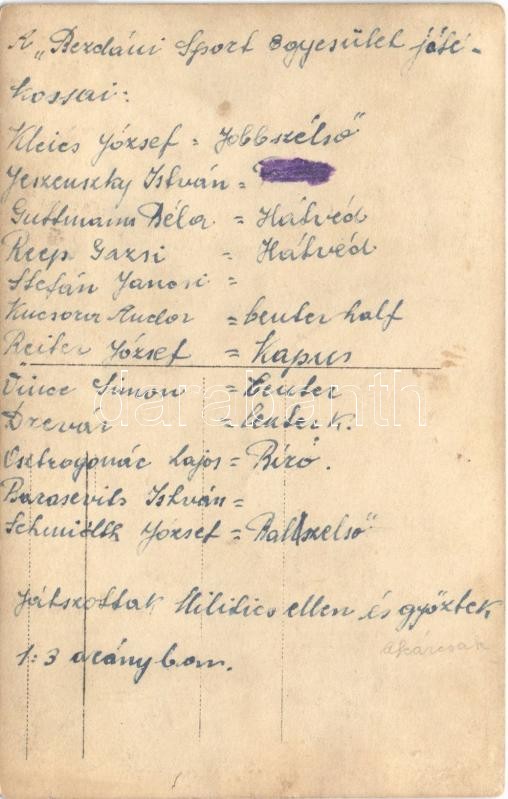 A "Bezdáni Sport Egyesület játé-
kossai:
Kleics József = Jobbszélső
Jeszenszky István =
Guttmann Béla = Hátvéd
Reep Gazsi = Hátvéd
Stefán Jancsi =
Kucsora Andor = Center half
Reiter József = Kapus
Vince Simon = Center
Drevár = Center k.
Osztrogonác Lajos = Bíró.
Barasevits István =
Schmidth József = Ballszelső
Játszottak Militics ellen és győztek
1:3 arányban.
akárcsak
darabanth